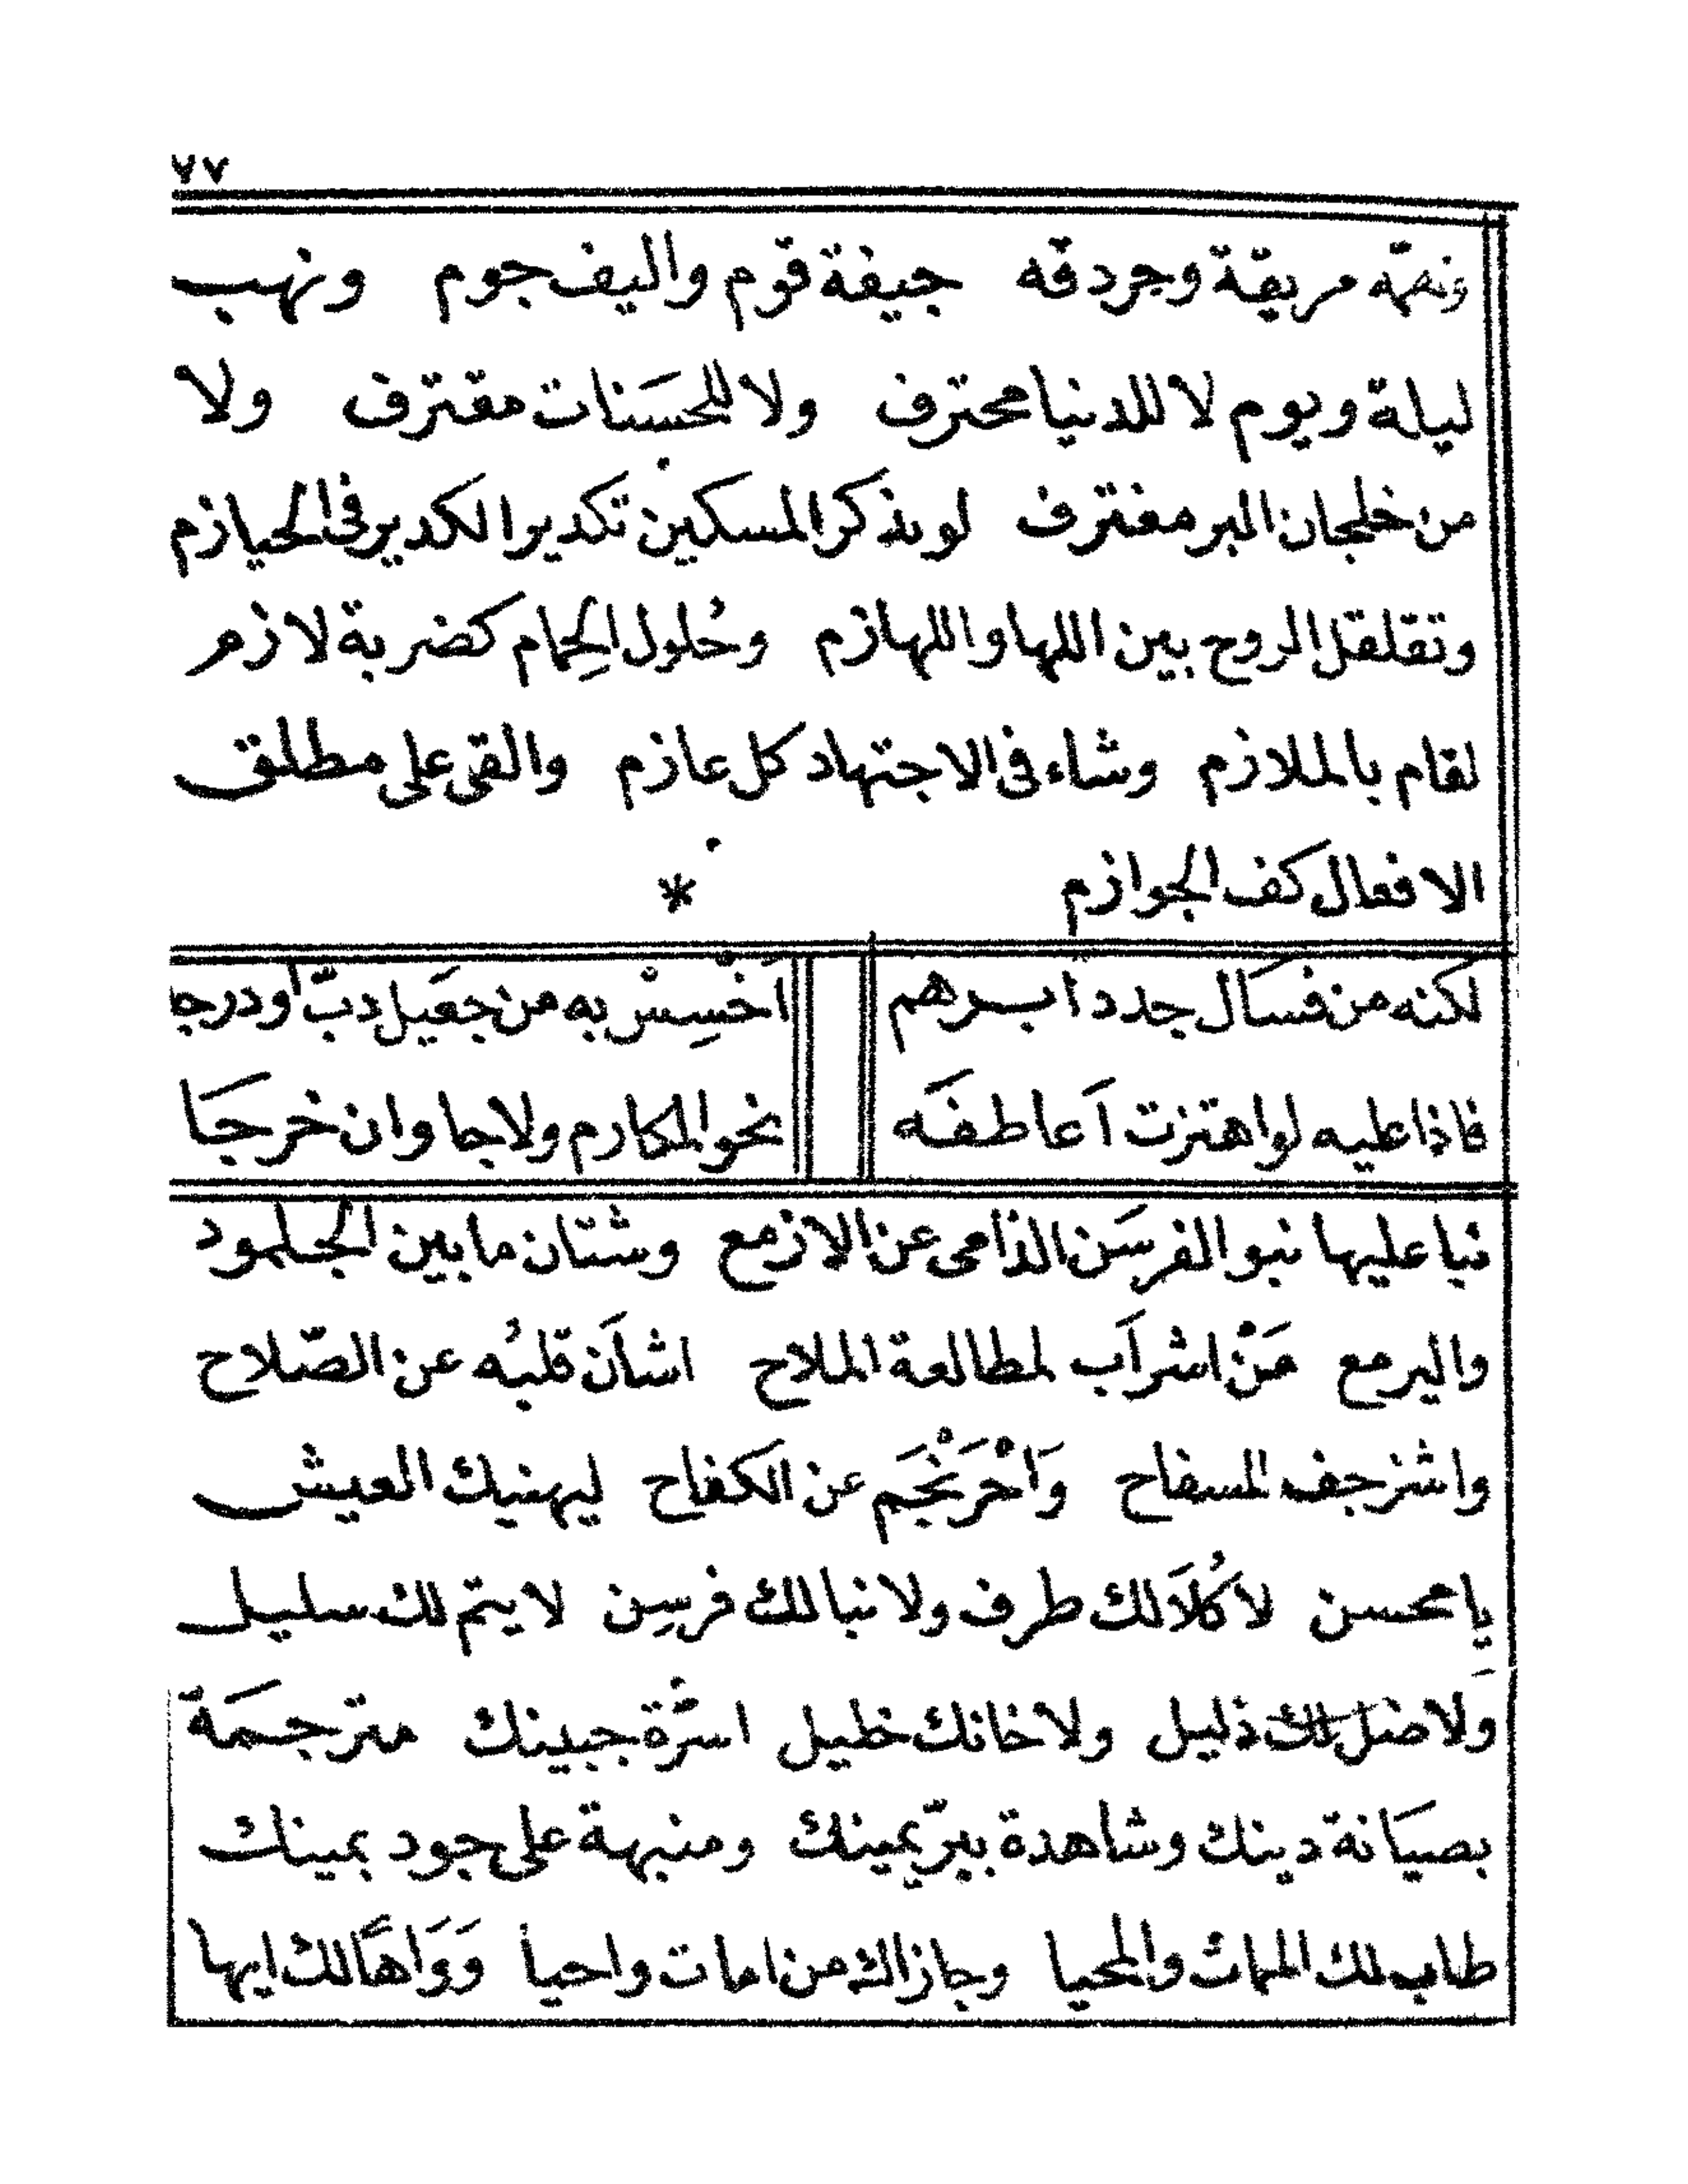 ٧٧
ونهمّه مريقة وجردقه جيفة قوم واليف جوم ونهب
ليلة ويوم لا للدنيا محترف ولا للحسَنات مقترف ولا
من خلجان البر مغترف لو يذكر المسكين تكديرا لكدير فى الحيازم
وتقلقل الروح بين اللها واللهازم وحُلول الحِمام كضربة لازم
لقام بالملازم وشاء فى الاجتهاد كل عازم والقى على مطلق
الافعال كف الجوازم *
لكنه من فسَال جدد ابرهم اَخْسِسْ به من جعَيل دبّ او درجا
فاذا عليه لو اهتزت اَعاطفَه نحو المكارم ولاجا وان خرجَا
نبا عليها نبو الفرسَن الذامى عن الازمع وشتان ما بين الجلمود
واليرمع مَنْ اشراَب لمطالعة الملاح اشاَن قلبُه عن الصّلاح
واشزجف المسفاح وَاحْرَنْجَم عن الكفاح ليهنيك العيش
يا محسن لا كُلاَ لك طرف ولا نبا لك فرسِن لا يتم لك سليل
وَلا ضل لك ذليل ولا خانك خليل اسرّة جبينك مترجمَة
بصيَانة دينك وشاهدة ببرّ يمينك ومنبهة على جود بمينك
طاب لك الممات والمحيا وجازاك من امات واحيا وَوَاهًا لك ايها